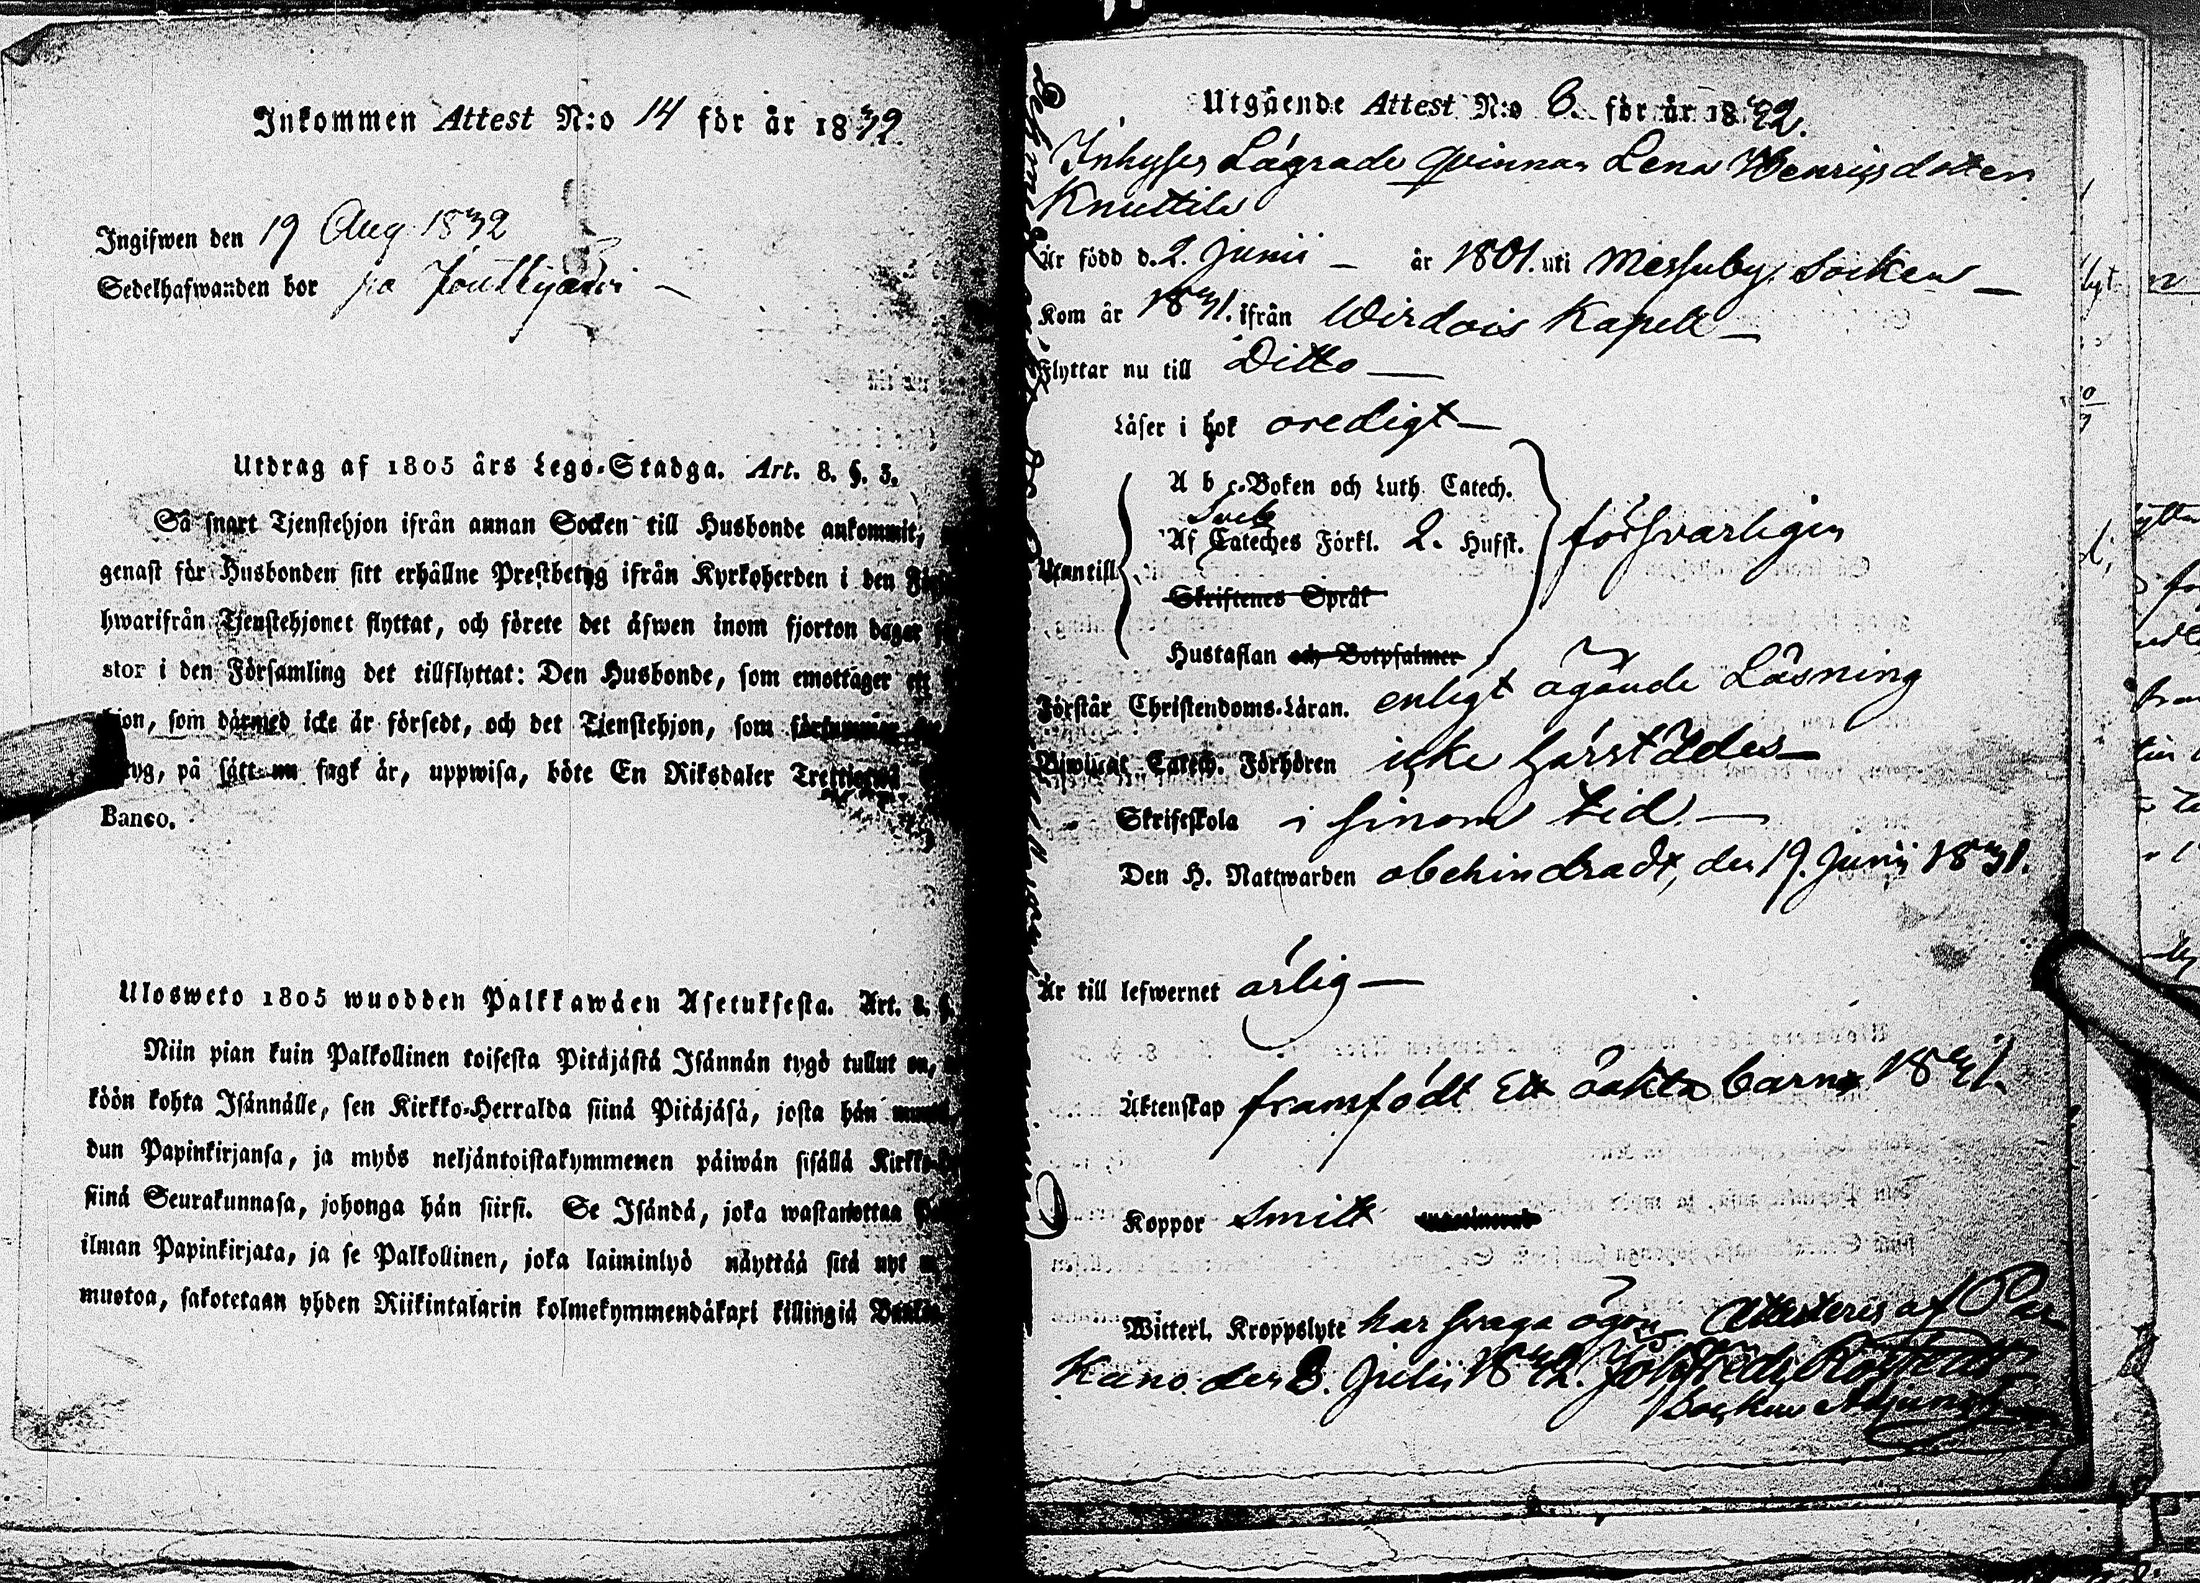 Inkommen Attest N:o 14 för år 1832
Ingifwen den 19 Aug 1832
Sedelhafwanden bor på
Utdrag af 1805 års Lego-Stadga. Art. 8. §. 3.
Så snart Tjenstehjon ifrån annan Socken till Husbonde ankommit,
genast för Husbonden sitt erhållne Prestbetyg ifrån Kyrkoherden i den
hwarifrån Tjenstehjonet flyttat, och förete det äfwen inom fjorton dagar
stor i den Församling det tillflyttat: Den Husbonde, som emottager ett
hjon, som därmed icke är försedt, och det Tjenstehjon, som försummar
tyg, på sätt nu sagt är, uppwisa, böte En Riksdaler Trettiotwå
Banco.
Ulosweto 1805 wuodden Palkkawäen Asetuksesta. Art. 8. §.
Niin pian kuin Palkollinen toisesta Pitäjästä Isännän tygö tullut on,
köön kohta Isännälle, sen Kirkko-Herralda siinä Pitäjäsä, josta hän
dun Papinkirjansa, ja myös neljäntoistakymmenen päiwän sisällä
siinä Seurakunnasa, johonga hän siirsi. Se Isändä, joka wastanottaa
ilman Papinkirjata, ja se Palkollinen, joka laiminlyö näyttää sitä nyt
muotoa, sakotetaan yhden Riikintalarin kolmekymmendäkaxi killingiä
Utgående Attest N:o 6. för år 1832.
Inhyses Lägrade qvinnan Lena Henrigsdotter
Knuttila
Är född d. 2. Junii – år 1801. uti Messuby Socken –
Kom år 1831. ifrån Wirdois Kapell –
Flyttar nu till Ditto –
Läser i bok oredigt –
A b c-Boken och Luth Catech.
Sveb
Af Cateches Förkl. 2. Hufst. försvarligen
Utantill
Skriftenes Språk
Hustaflan och Botpsalmer
Förstår Christendoms-Läran. enligt ägande Läsning
Biwistat Catech. Förhören icke härstädes –
Skriftskola i sinom tid –
Den H. Nattwarden obehindradt, den 19. Junii 1831.
Är till lefwernet ärlig –
Äktenskap framfödt Ett oäkta barn 1831.
Koppor Smitt
Witterl. Kroppslyte har svaga ögon Attesteras af Par
kano den 3. Julii 1832.
Adjunct